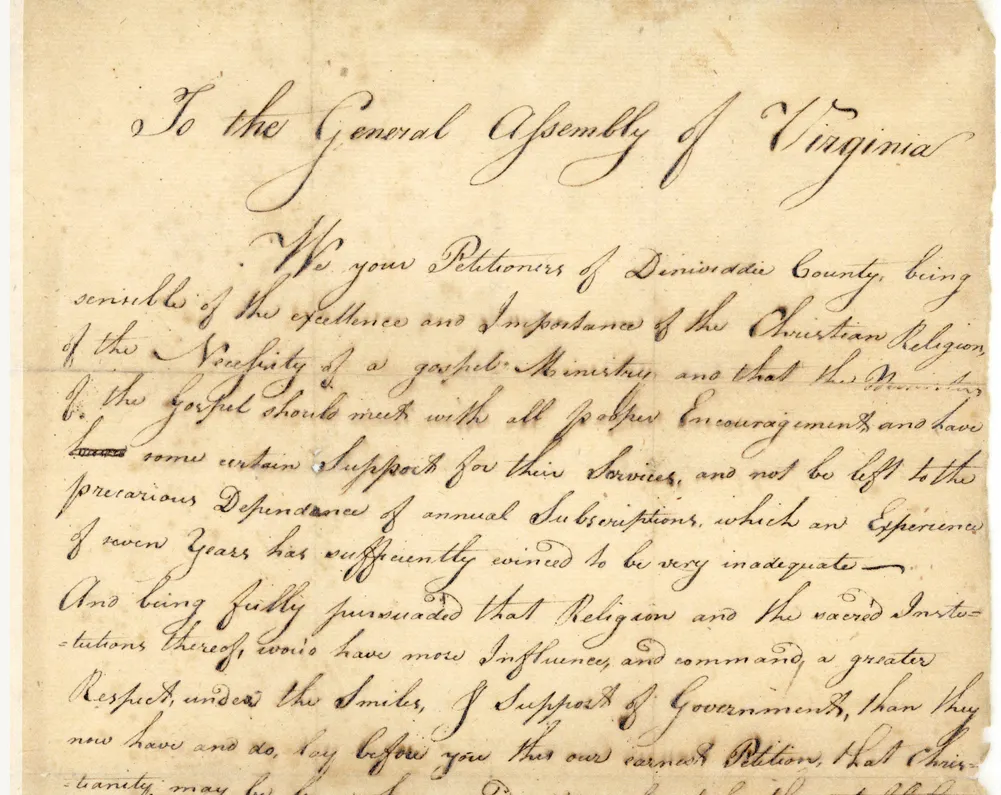 To the General Assembly of Virginia
We your Petitioners of Dinwiddie County, being
sensible of the excellence and Importance of the Christian Religion,
of the Necessity of a gospel-Ministry and that the Ministers
of the Gospel should meet with all proper Encouragement, and have
some certain Support for their Services, and not be left to the
precarious Dependance of annual Subscriptions, which an Experience
of seven Years has sufficiently evinced to be very inadequate—
And being fully pursuaded that Religion and the sacred Inste-
-tutions thereof, would have more Influence, and command, a greater
Respect, under the Smiles, & Support of Government, than they
now have and do, lay before you this our earnest Petition, that Chris-
-tianity, may be